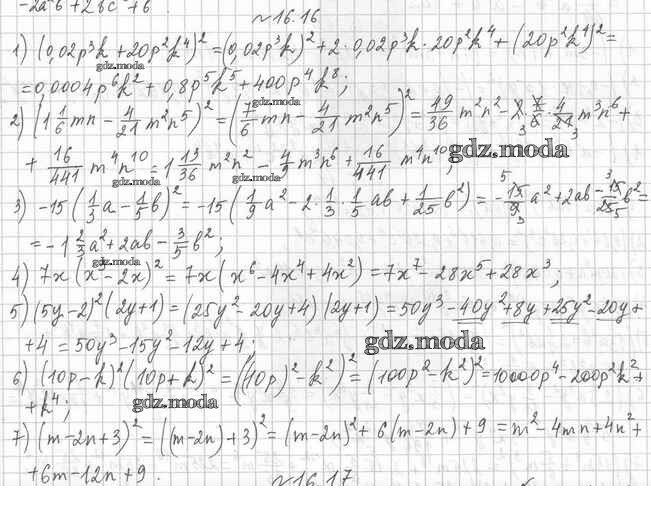 -2a²b + 2bc² + 6 .
№ 16.16
1) (0,02p³k + 20p²k⁴)² = (0,02p³k)² + 2·0,02p³k·20p²k⁴ + (20p²k⁴)² =
gdz.moda
= 0,0004p⁶k² + 0,8p⁵k⁵ + 400p⁴k⁸;
gdz.moda
2) (1 1/6 mn - 4/21 m²n⁵)² = (7/6 mn - 4/21 m²n⁵)² = 49/36 m²n² - 2·7/6·4/21 m³n⁶ +
3 3
gdz.moda
+ 16/441 m⁴n¹⁰ = 1 13/36 m²n² - 4/9 m³n⁶ + 16/441 m⁴n¹⁰;
gdz.moda gdz.moda
3) -15(1/3 a - 1/5 b)² = -15(1/9 a² - 2·1/3·1/5 ab + 1/25 b²) = - 5 15/9 3 a² + 2ab - 3 15/25 5 b² =
= -1 2/3 a² + 2ab - 3/5 b²;
gdz.moda
4) 7x(x³ - 2x)² = 7x(x⁶ - 4x⁴ + 4x²) = 7x⁷ - 28x⁵ + 28x³;
5) (5y - 2)²(2y + 1) = (25y² - 20y + 4)(2y + 1) = 50y³ - 40y² + 8y + 25y² - 20y +
+ 4 = 50y³ - 15y² - 12y + 4;
gdz.moda
6) (10p - k)²(10p + k)² = ((10p)² - k²)² = (100p² - k²)² = 10000p⁴ - 200p²k² +
+ k⁴;
gdz.moda
7) (m - 2n + 3)² = ((m - 2n) + 3)² = (m - 2n)² + 6(m - 2n) + 9 = m² - 4mn + 4n² +
+ 6m - 12n + 9 .
№ 16.17